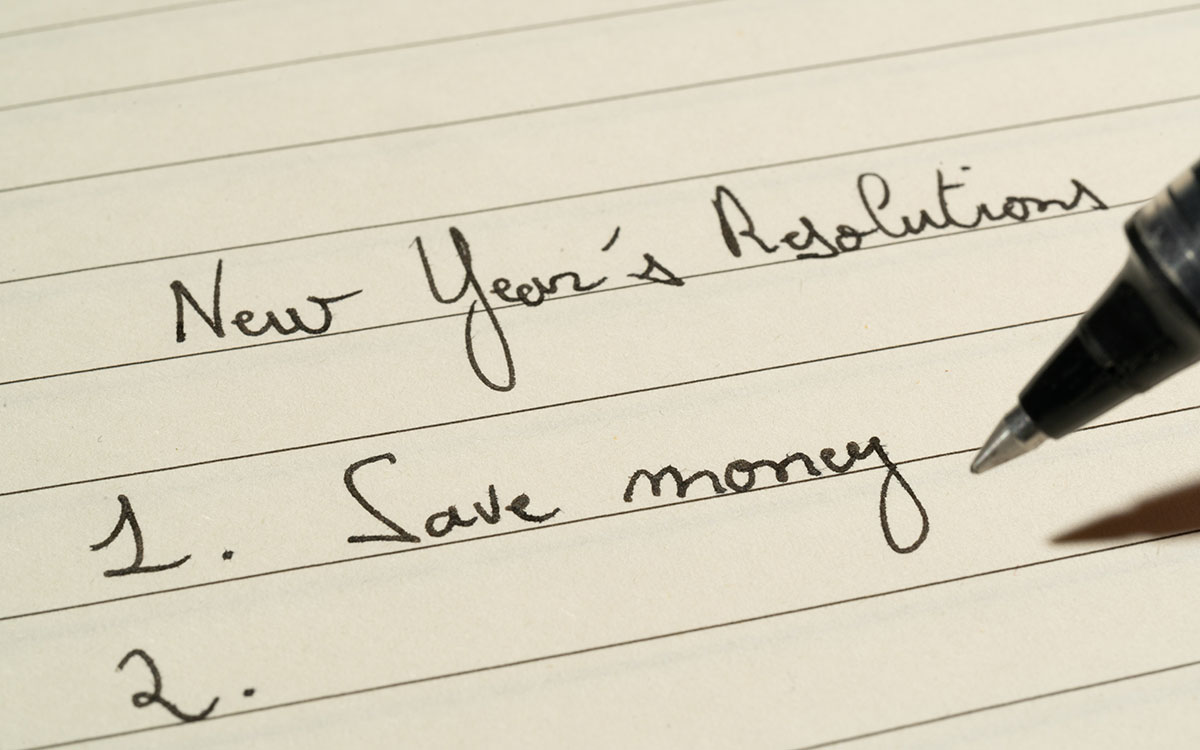 New Year's Resolutions
1. Save money
2.